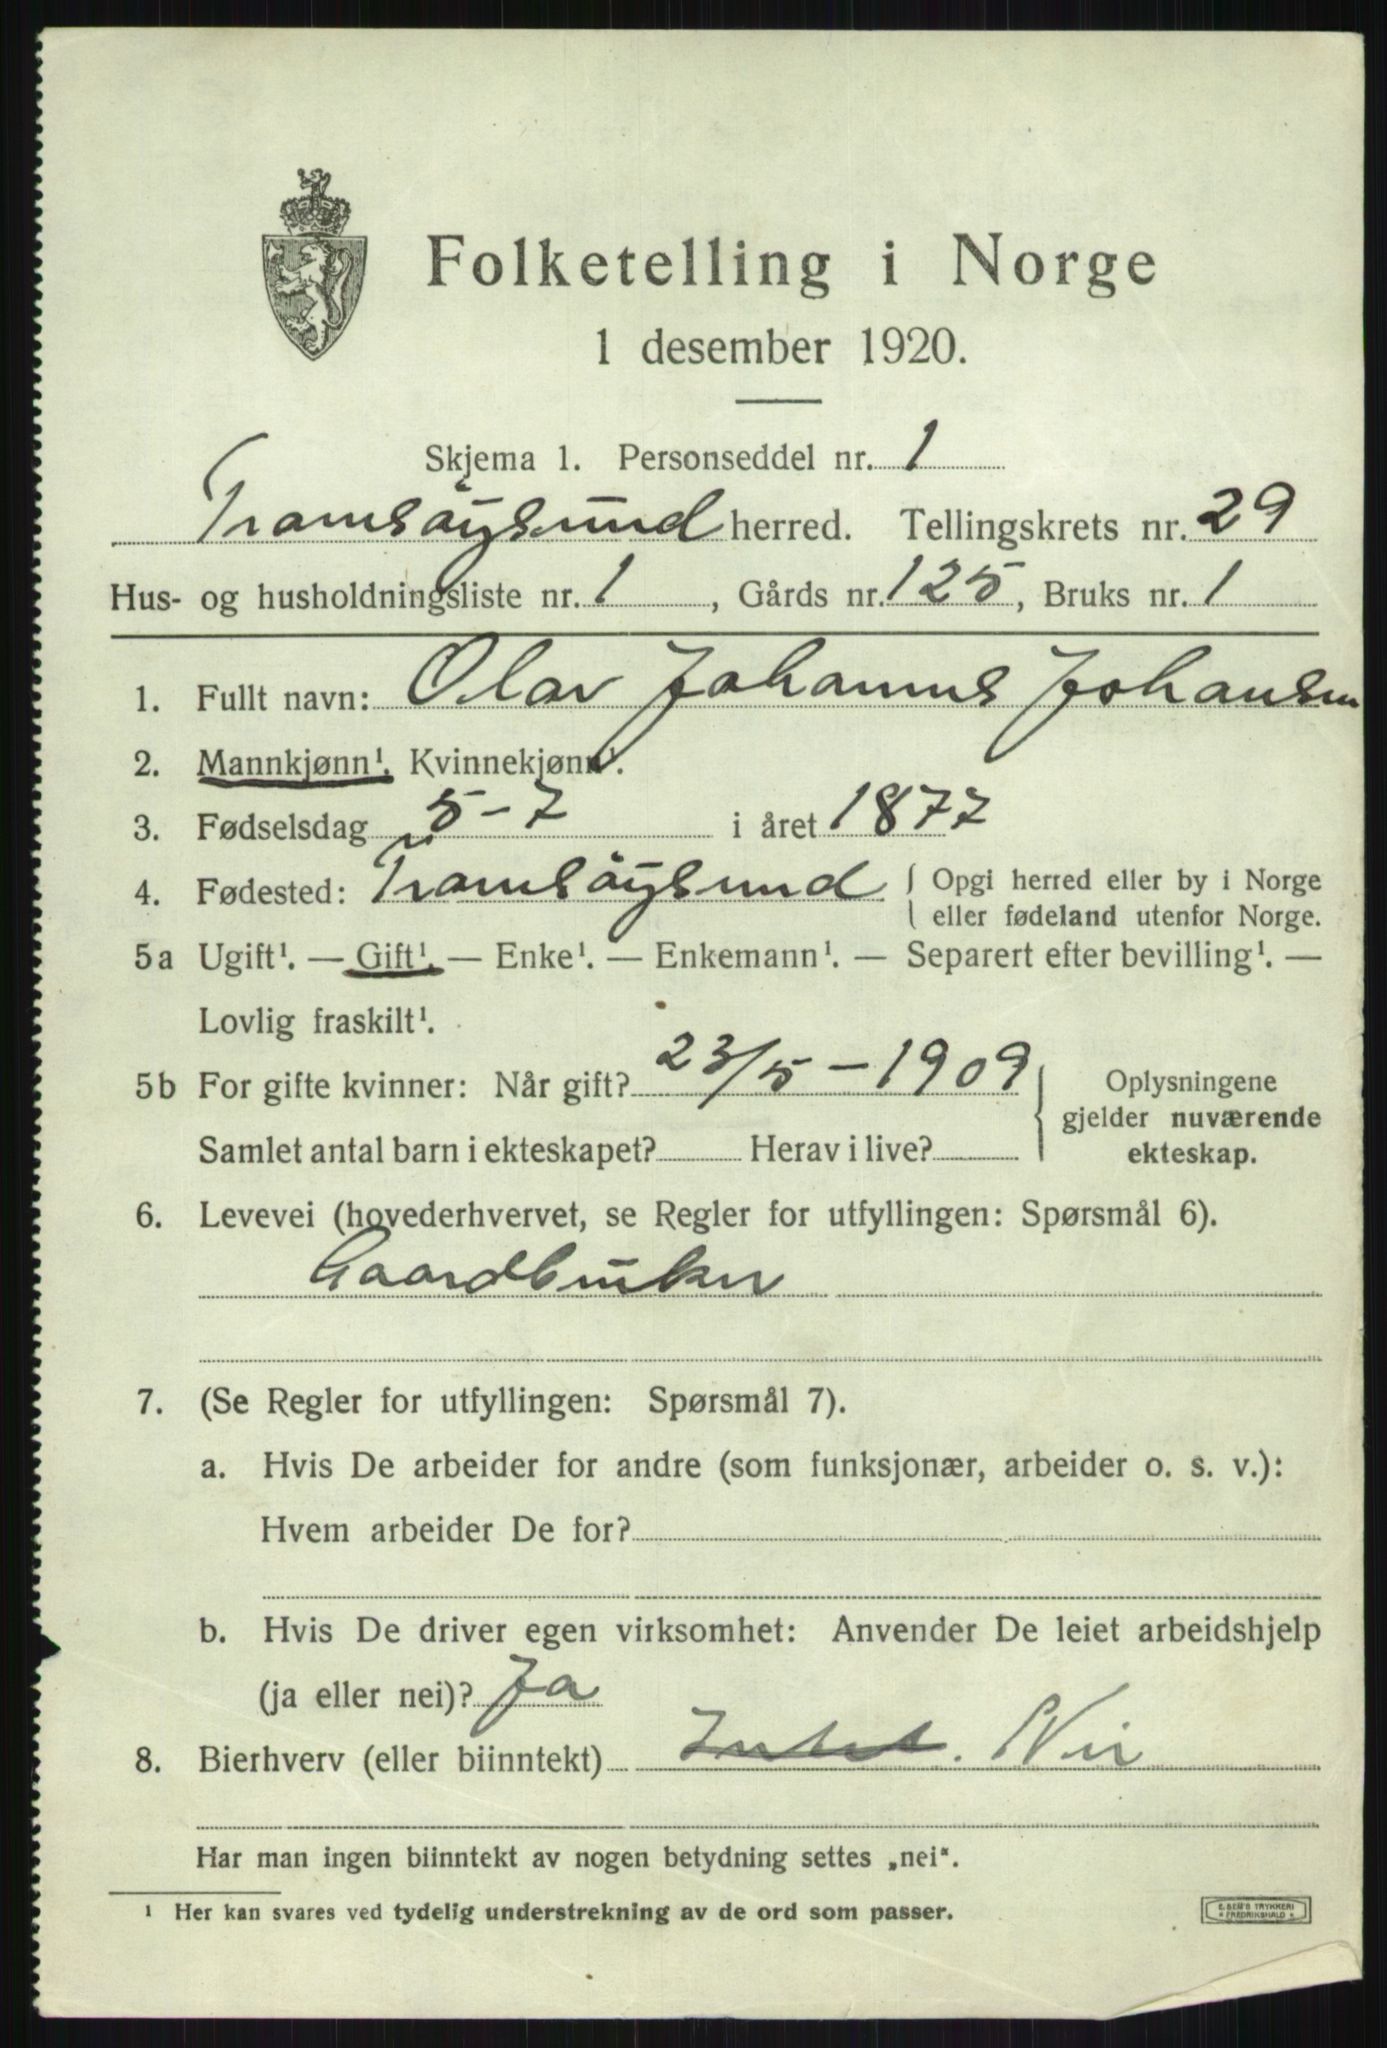 Folketelling i Norge
1 desember 1920.
Skjema 1. Personseddel nr. 1
Tromsöysund herred. Tellingskrets nr. 29
Hus- og husholdningsliste nr. 1, Gårds nr. 125, Bruks nr. 1
1. Fullt navn: Olav Johannes Johansen
2. Mannkjønn¹. Kvinnekjønn¹.
3. Fødselsdag 5-7 i året 1877
4. Fødested: Tromsöysund { Opgi herred eller by i Norge
eller fødeland utenfor Norge.
5a Ugift¹. — Gift¹. — Enke¹. — Enkemann¹. — Separert efter bevilling¹. —
Lovlig fraskilt¹.
5b For gifte kvinner: Når gift? 23/5-1909
Samlet antal barn i ekteskapet? Herav i live?
Oplysningene
gjelder nuværende
ekteskap.
6. Levevei (hovederhvervet, se Regler for utfyllingen: Spørsmål 6).
Gaardbruker
7. (Se Regler for utfyllingen: Spørsmål 7).
a. Hvis De arbeider for andre (som funksjonær, arbeider o. s. v.):
Hvem arbeider De for?
b. Hvis De driver egen virksomhet: Anvender De leiet arbeidshjelp
(ja eller nei)? Ja
8. Bierhverv (eller biinntekt) Intet. Nei
Har man ingen biinntekt av nogen betydning settes „nei".
¹ Her kan svares ved tydelig understrekning av de ord som passer.
E. SEM'S TRYKKERI
FREDRIKSHALD